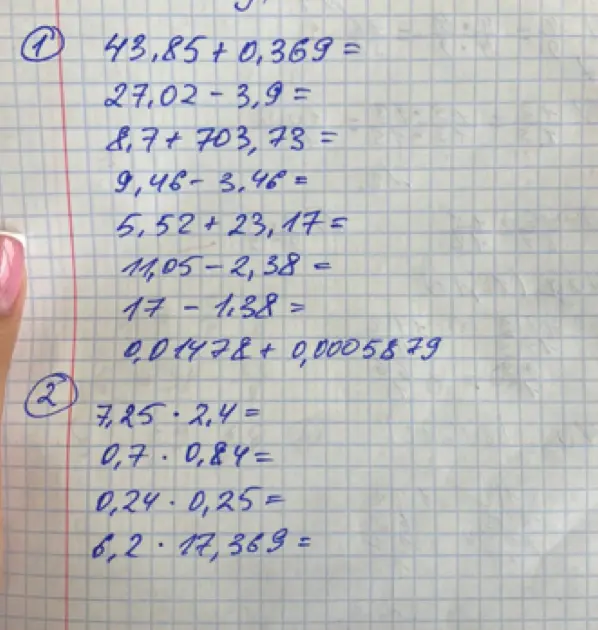 1 43,85 + 0,369 =
27,02 - 3,9 =
8,7 + 703,73 =
9,46 - 3,46 =
5,52 + 23,17 =
11,05 - 2,38 =
17 - 1.38 =
0,01478 + 0,0005879
2 7,25 · 2,4 =
0,7 · 0,84 =
0,24 · 0,25 =
6,2 · 17,369 =